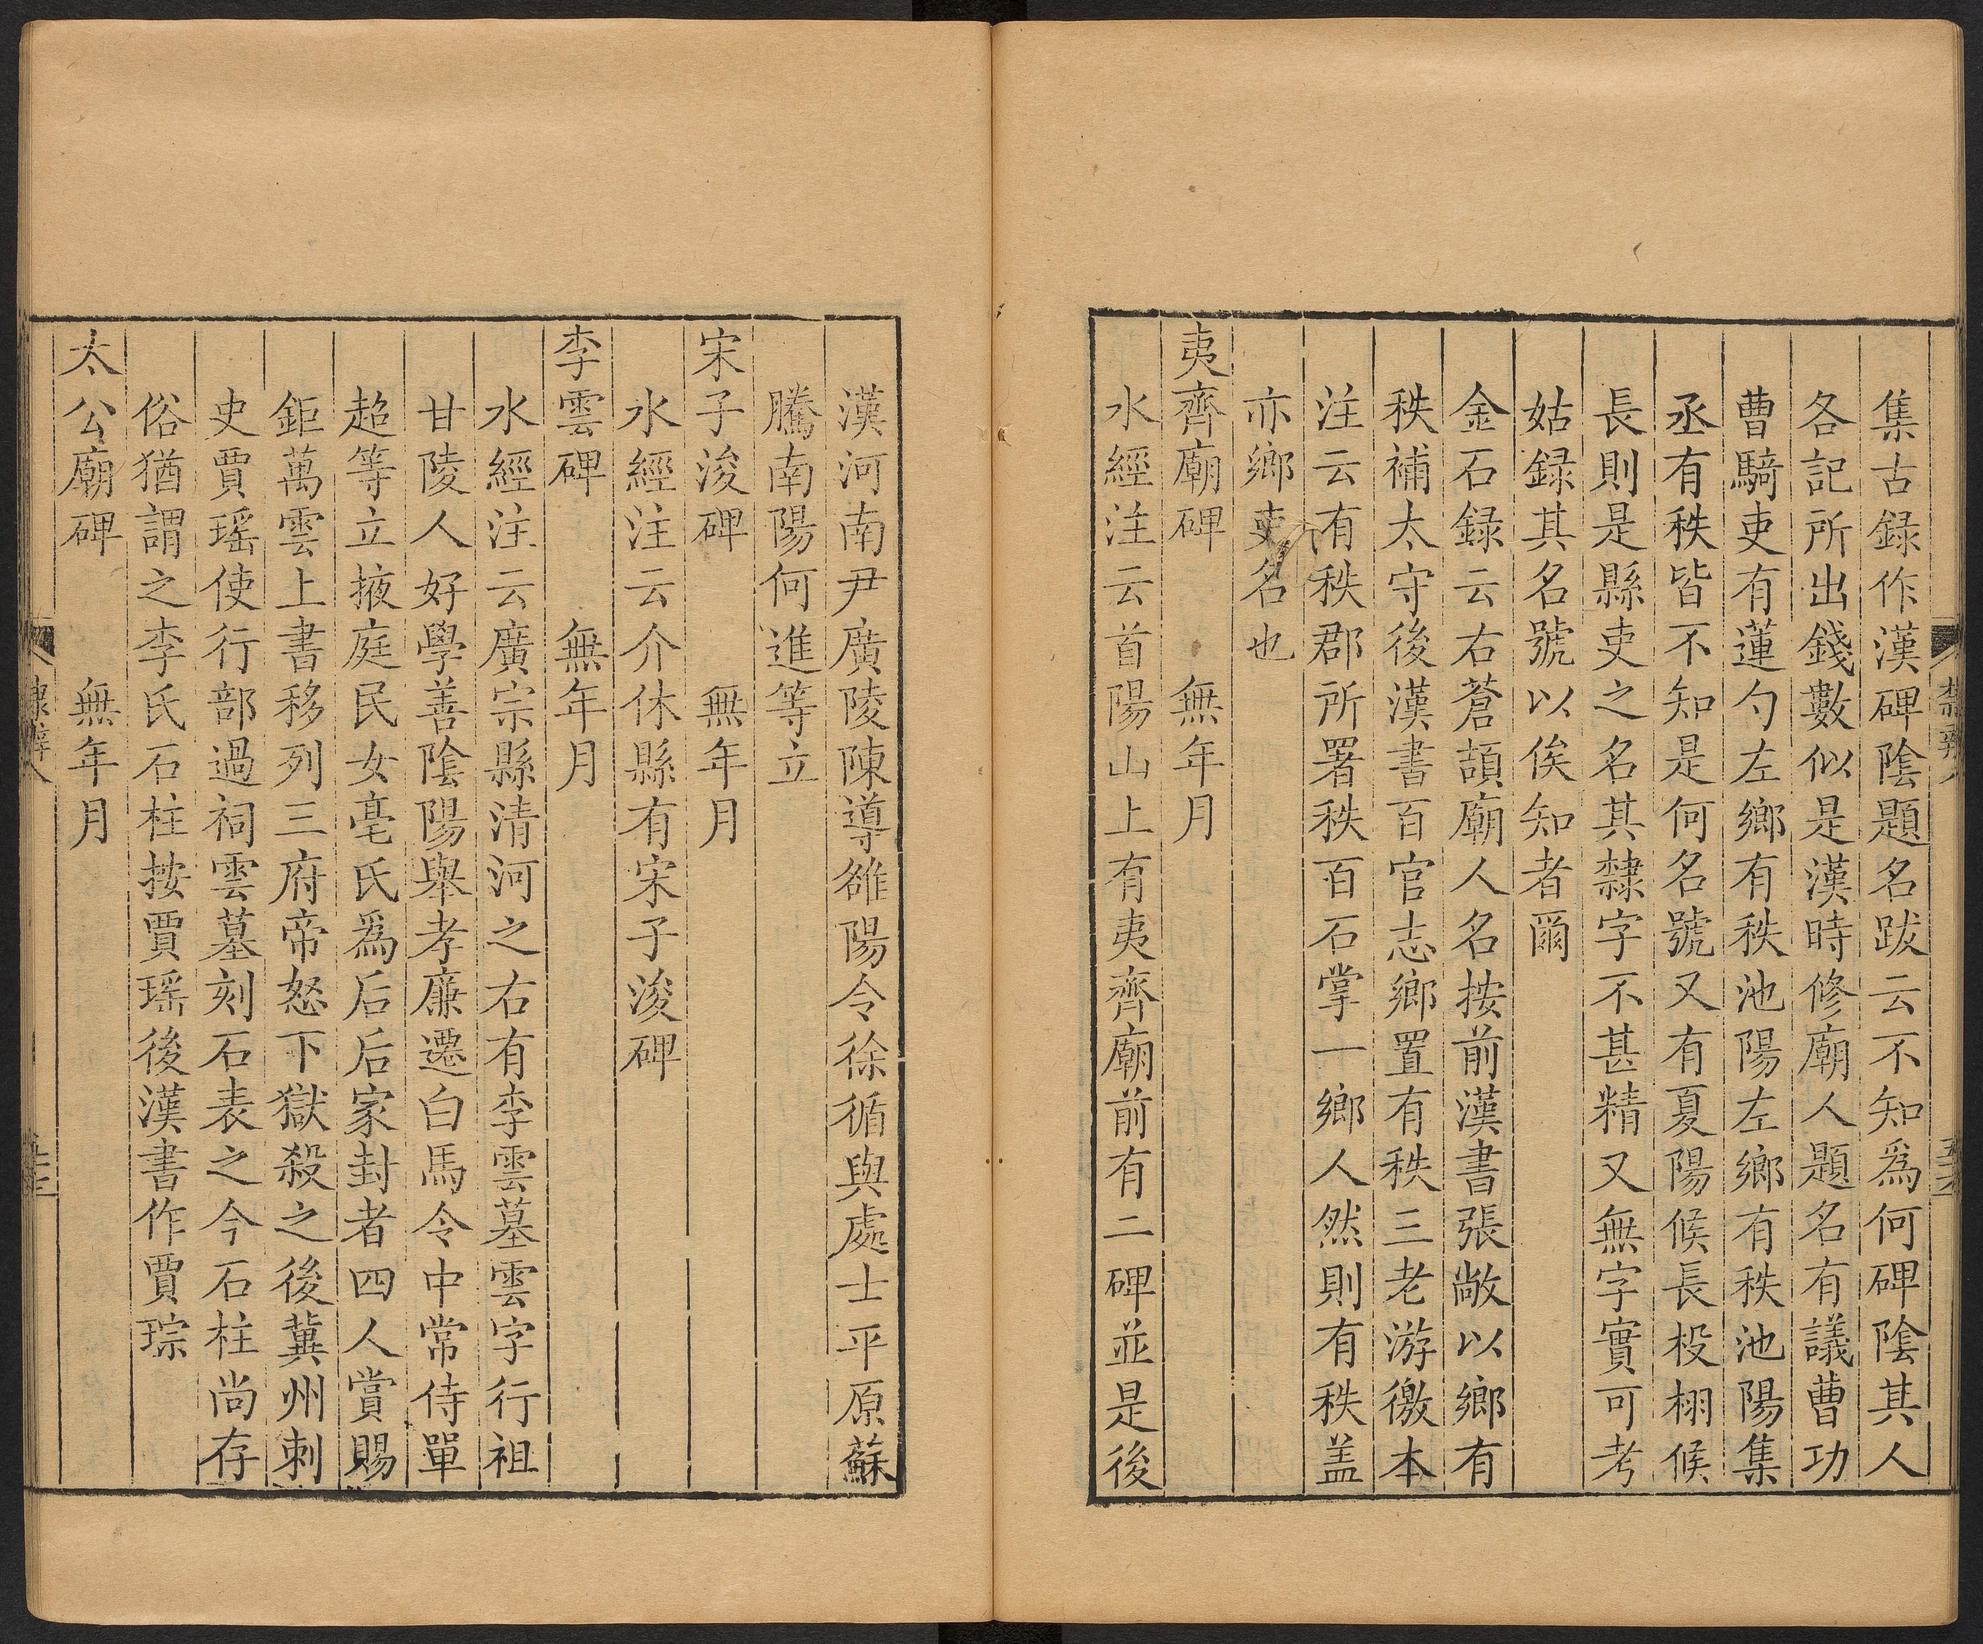 集古録作漢碑陰題名跋云不知爲何碑陰其人
各記所出錢數似是漢時修廟人題名有議曹功
曹騎吏有蓮勺左鄉有秩池陽左鄉有秩池陽集
丞有秩皆不知是何名號又有夏陽候長柭栩候
長則是縣吏之名其隸字不甚精又無字實可考
姑録其名號以俟知者爾
金石録云右蒼頡廟人名按前漢書張敞以鄉有
秩補太守後漢書百官志鄉置有秩三老游徼本
注云有秩郡所署秩百石掌一鄉人然則有秩盖
亦鄉吏名也
夷齊廟碑　　無年月
水經注云首陽山上有夷齊廟前有二碑並是後
漢河南尹廣陵陳導雒陽令徐循與處士平原蘇
騰南陽何進等立
宋子浚碑　　無年月
水經注云介休縣有宋子浚碑
李雲碑　　無年月
水經注云廣宗縣清河之右有李雲墓雲字行祖
甘陵人好學善陰陽舉孝廉遷白馬令中常侍單
超等立掖庭民女亳氏爲后后家封者四人賞賜
鉅萬雲上書移列三府帝怒下獄殺之後冀州刺
史賈瑶使行部過祠雲墓刻石表之今石柱尚存
俗猶謂之李氏石柱按賈瑶後漢書作賈琮
太公廟碑　　無年月